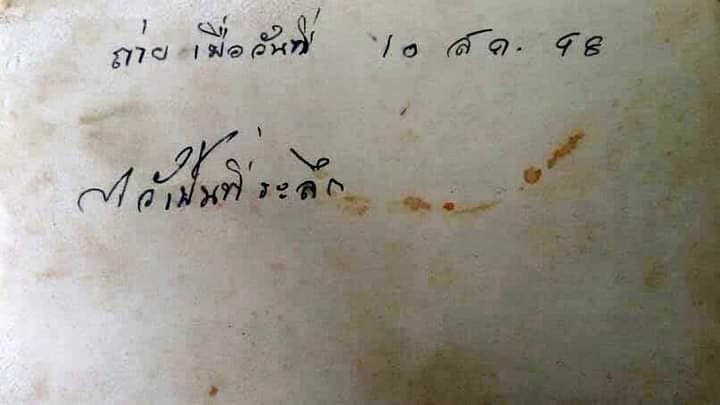 ถ่าย เมื่อวันที่ 10 ส.ค. 98
ไว้เป็นที่ระลึก